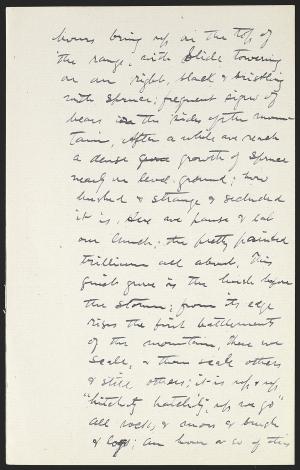 hours bring us on the top of
the range, with Slide towering
on our right, black & bristling
with spruce; frequent signs of
bears on the sides of the moun
tain. After a while we reach
a dense growth of spruce
nearly on level ground; how
hushed & strange & secluded
it is. Here we pause & eat
our lunch; the pretty painted
trilliums all about. This
quiet grove is the hush before
the storm; from its edge
rises the first battlements
of the mountain, these we
scale, & then scale others
& still others; it is up & up
"hitchety hatchety, up we go"
all rocks & moss & brush
& logs; an hour or so of this